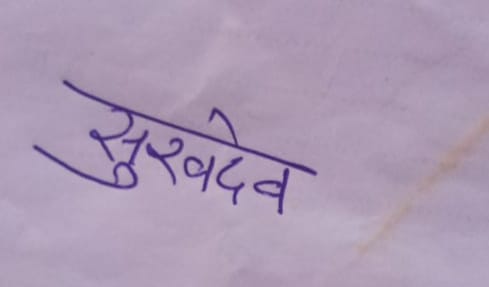 सुखदेव